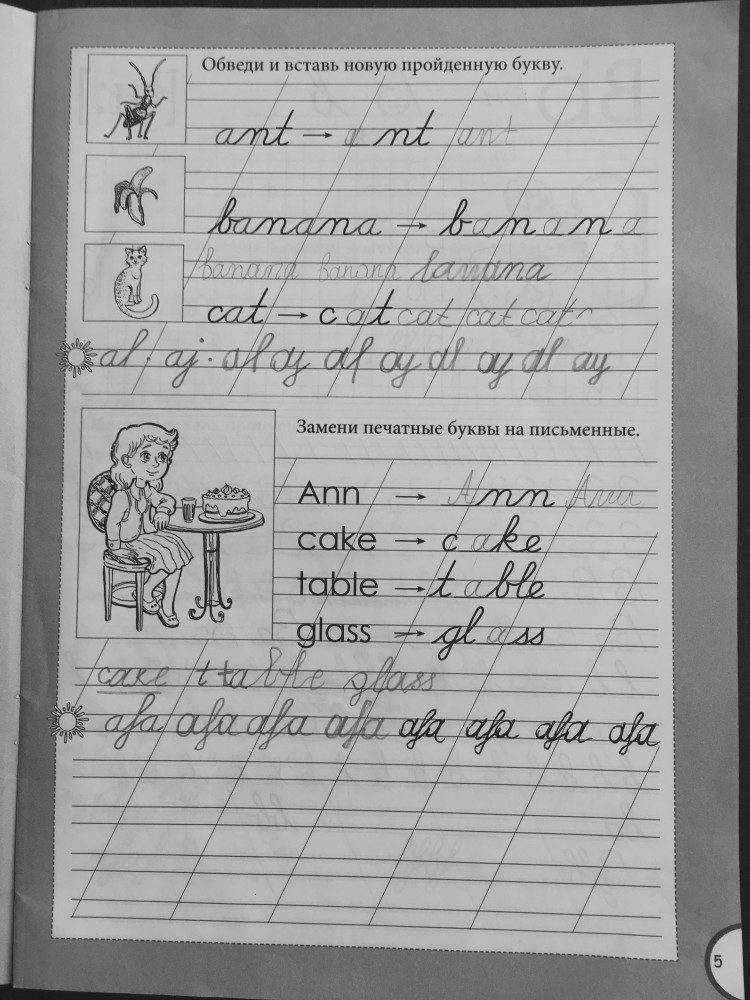 Обведи и вставь новую пройденную букву.
ant → a nt ant
banana → banana
banana banana banana
cat → cat cat cat cat
al · aj · al aj al aj al aj al aj
Замени печатные буквы на письменные.
Ann → Ann Ann
cake → cake
table → table
glass → glass
cake t table glass
afa afa afa afa afa afa afa afa
5